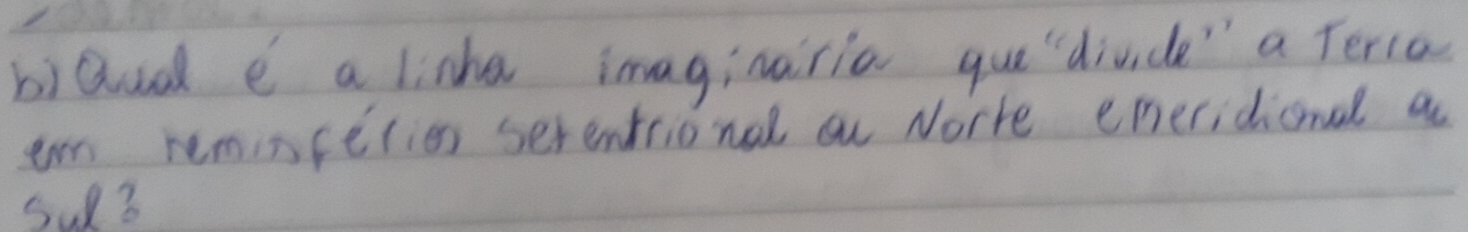 b) Qual é a linha imaginária que "divide" a Terra
em reminsférios setentrional ou Norte emeridional ou
Sul?